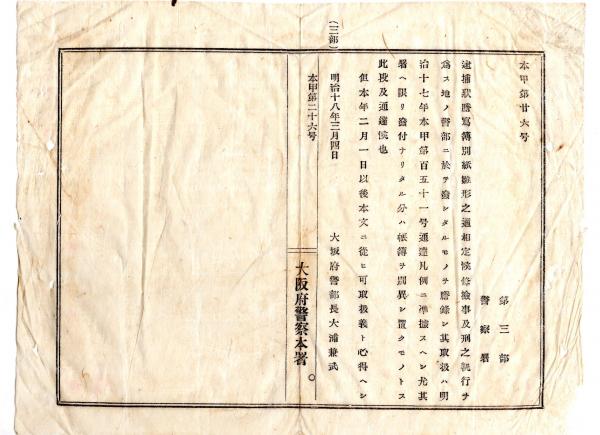 本甲第廿六号
第三部
警察署
逮捕狀謄寫簿別紙雛形之通相定候條檢事及刑之執行ヲ
為ス地ノ警部ニ於テ發シタルモノヲ謄錄シ其取扱ハ明
治十七年本甲第百五十一号通達凡例ニ準據スヘシ尤其
署ヘ限リ發付ナリタル分ハ帳簿ヲ別異シ置クモノトス
此段及通達候也
但本年二月一日以後本文ニ從ヒ可取扱義ト心得ヘシ
明治十八年三月四日
大坂府警部長大浦兼武
本甲第二十六号
大阪府警察本署
(三部)